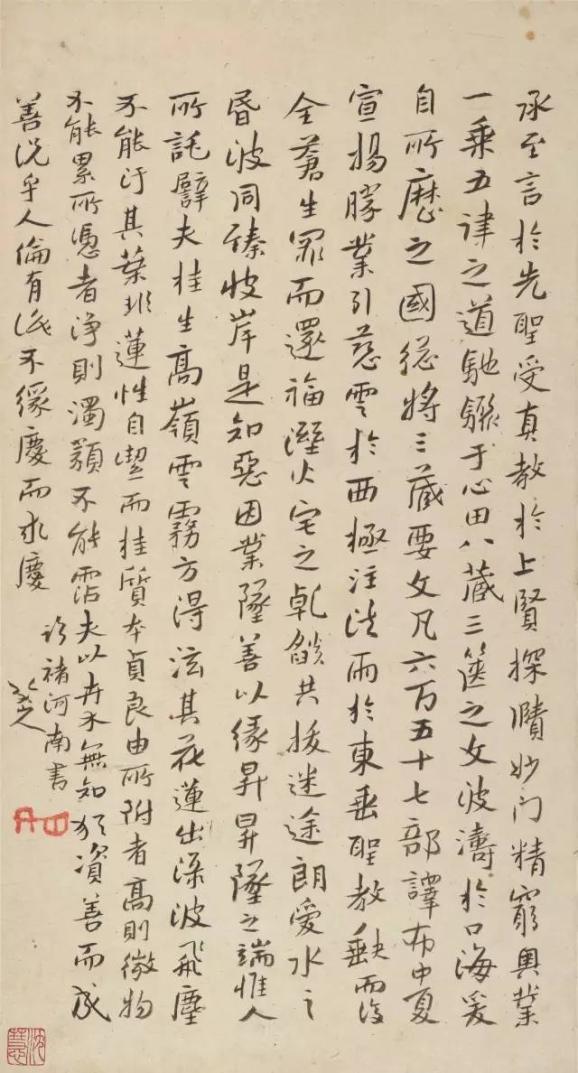 承至言於先聖受真教於上賢探賾妙門精窮奧業
一乘五律之道馳驟于心田八藏三篋之文波濤於口海爰
自所歷之國總將三藏要文凡六百五十七部譯布中夏
宣揚勝業引慈雲於西極注法雨於東垂聖教缺而復
全蒼生罪而還福濕火宅之乾燄共拔迷途朗愛水之
昏波同臻彼岸是知惡因業墜善以緣昇昇墜之端惟人
所託譬夫桂生高嶺雲霧方得泫其花蓮出淥波飛塵
不能汙其葉非蓮性自潔而桂質本貞良由所附者高則微物
不能累所憑者淨則濁類不能霑夫以卉木無知猶資善而成
善況乎人倫有識不緣慶而求慶
臨褚河南書